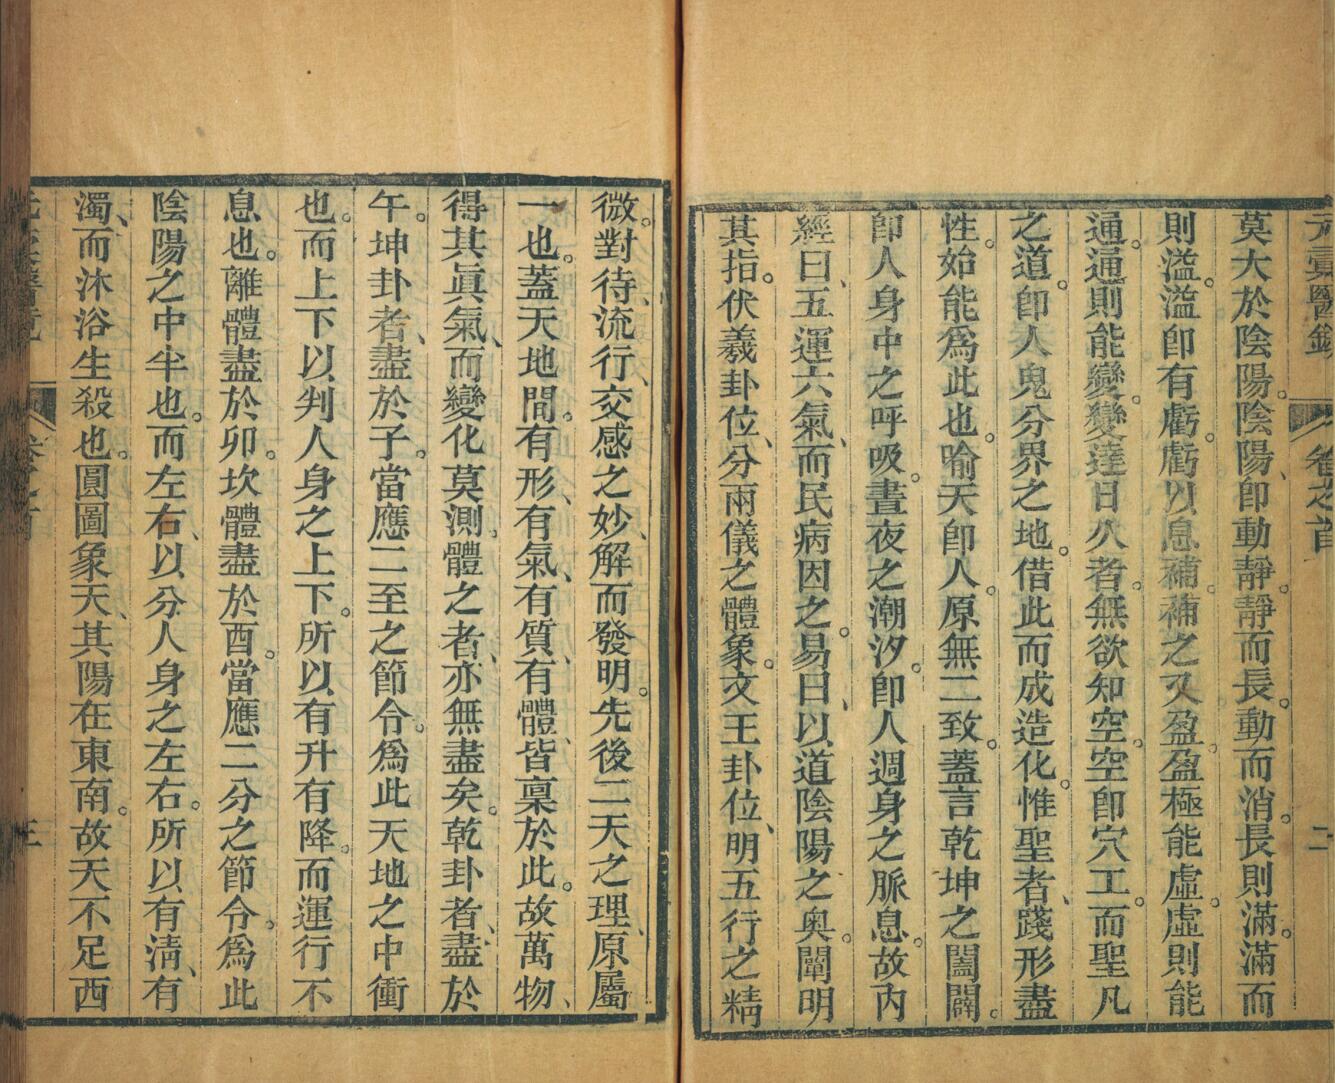 莫大於陰陽。陰陽、卽動靜。靜而長。動而消。長則滿。滿而
則溢。溢卽有虧。虧以息補。補之又盈。盈極能虛。虛則能
通。通則能變。變達曰久者。無欲知空。空卽穴工。而聖凡
之道。卽人鬼分界之地。借此而成造化。惟聖者、踐形盡
性。始能爲此也。喻天卽人。原無二致。蓋言乾坤之闔闢。
卽人身中之呼吸。晝夜之潮汐。卽人週身之脈息。故內
經曰、五運六氣、而民病因之。易曰、以道陰陽之奥。闡明
其指。伏羲卦位、分兩儀之體象。文王卦位、明五行之精
微。對待流行、交感之妙、解而發明。先後二天之理、原屬
一也。蓋天地間。有形、有氣、有質、有體、皆稟於此。故萬物、
得其眞氣、而變化莫測。體之者、亦無盡矣。乾卦者、盡於
午。坤卦者、盡於子。當應二至之節令。爲此天地之中衝
也。而上下以判人身之上下。所以有升有降。而運行不
息也。離體盡於卯。坎體盡於酉。當應二分之節令。爲此
陰陽之中半也。而左右、以分人身之左右。所以有淸、有
濁、而沐浴生殺也。圓圖象天、其陽在東南。故天不足西
卷之首
二
三